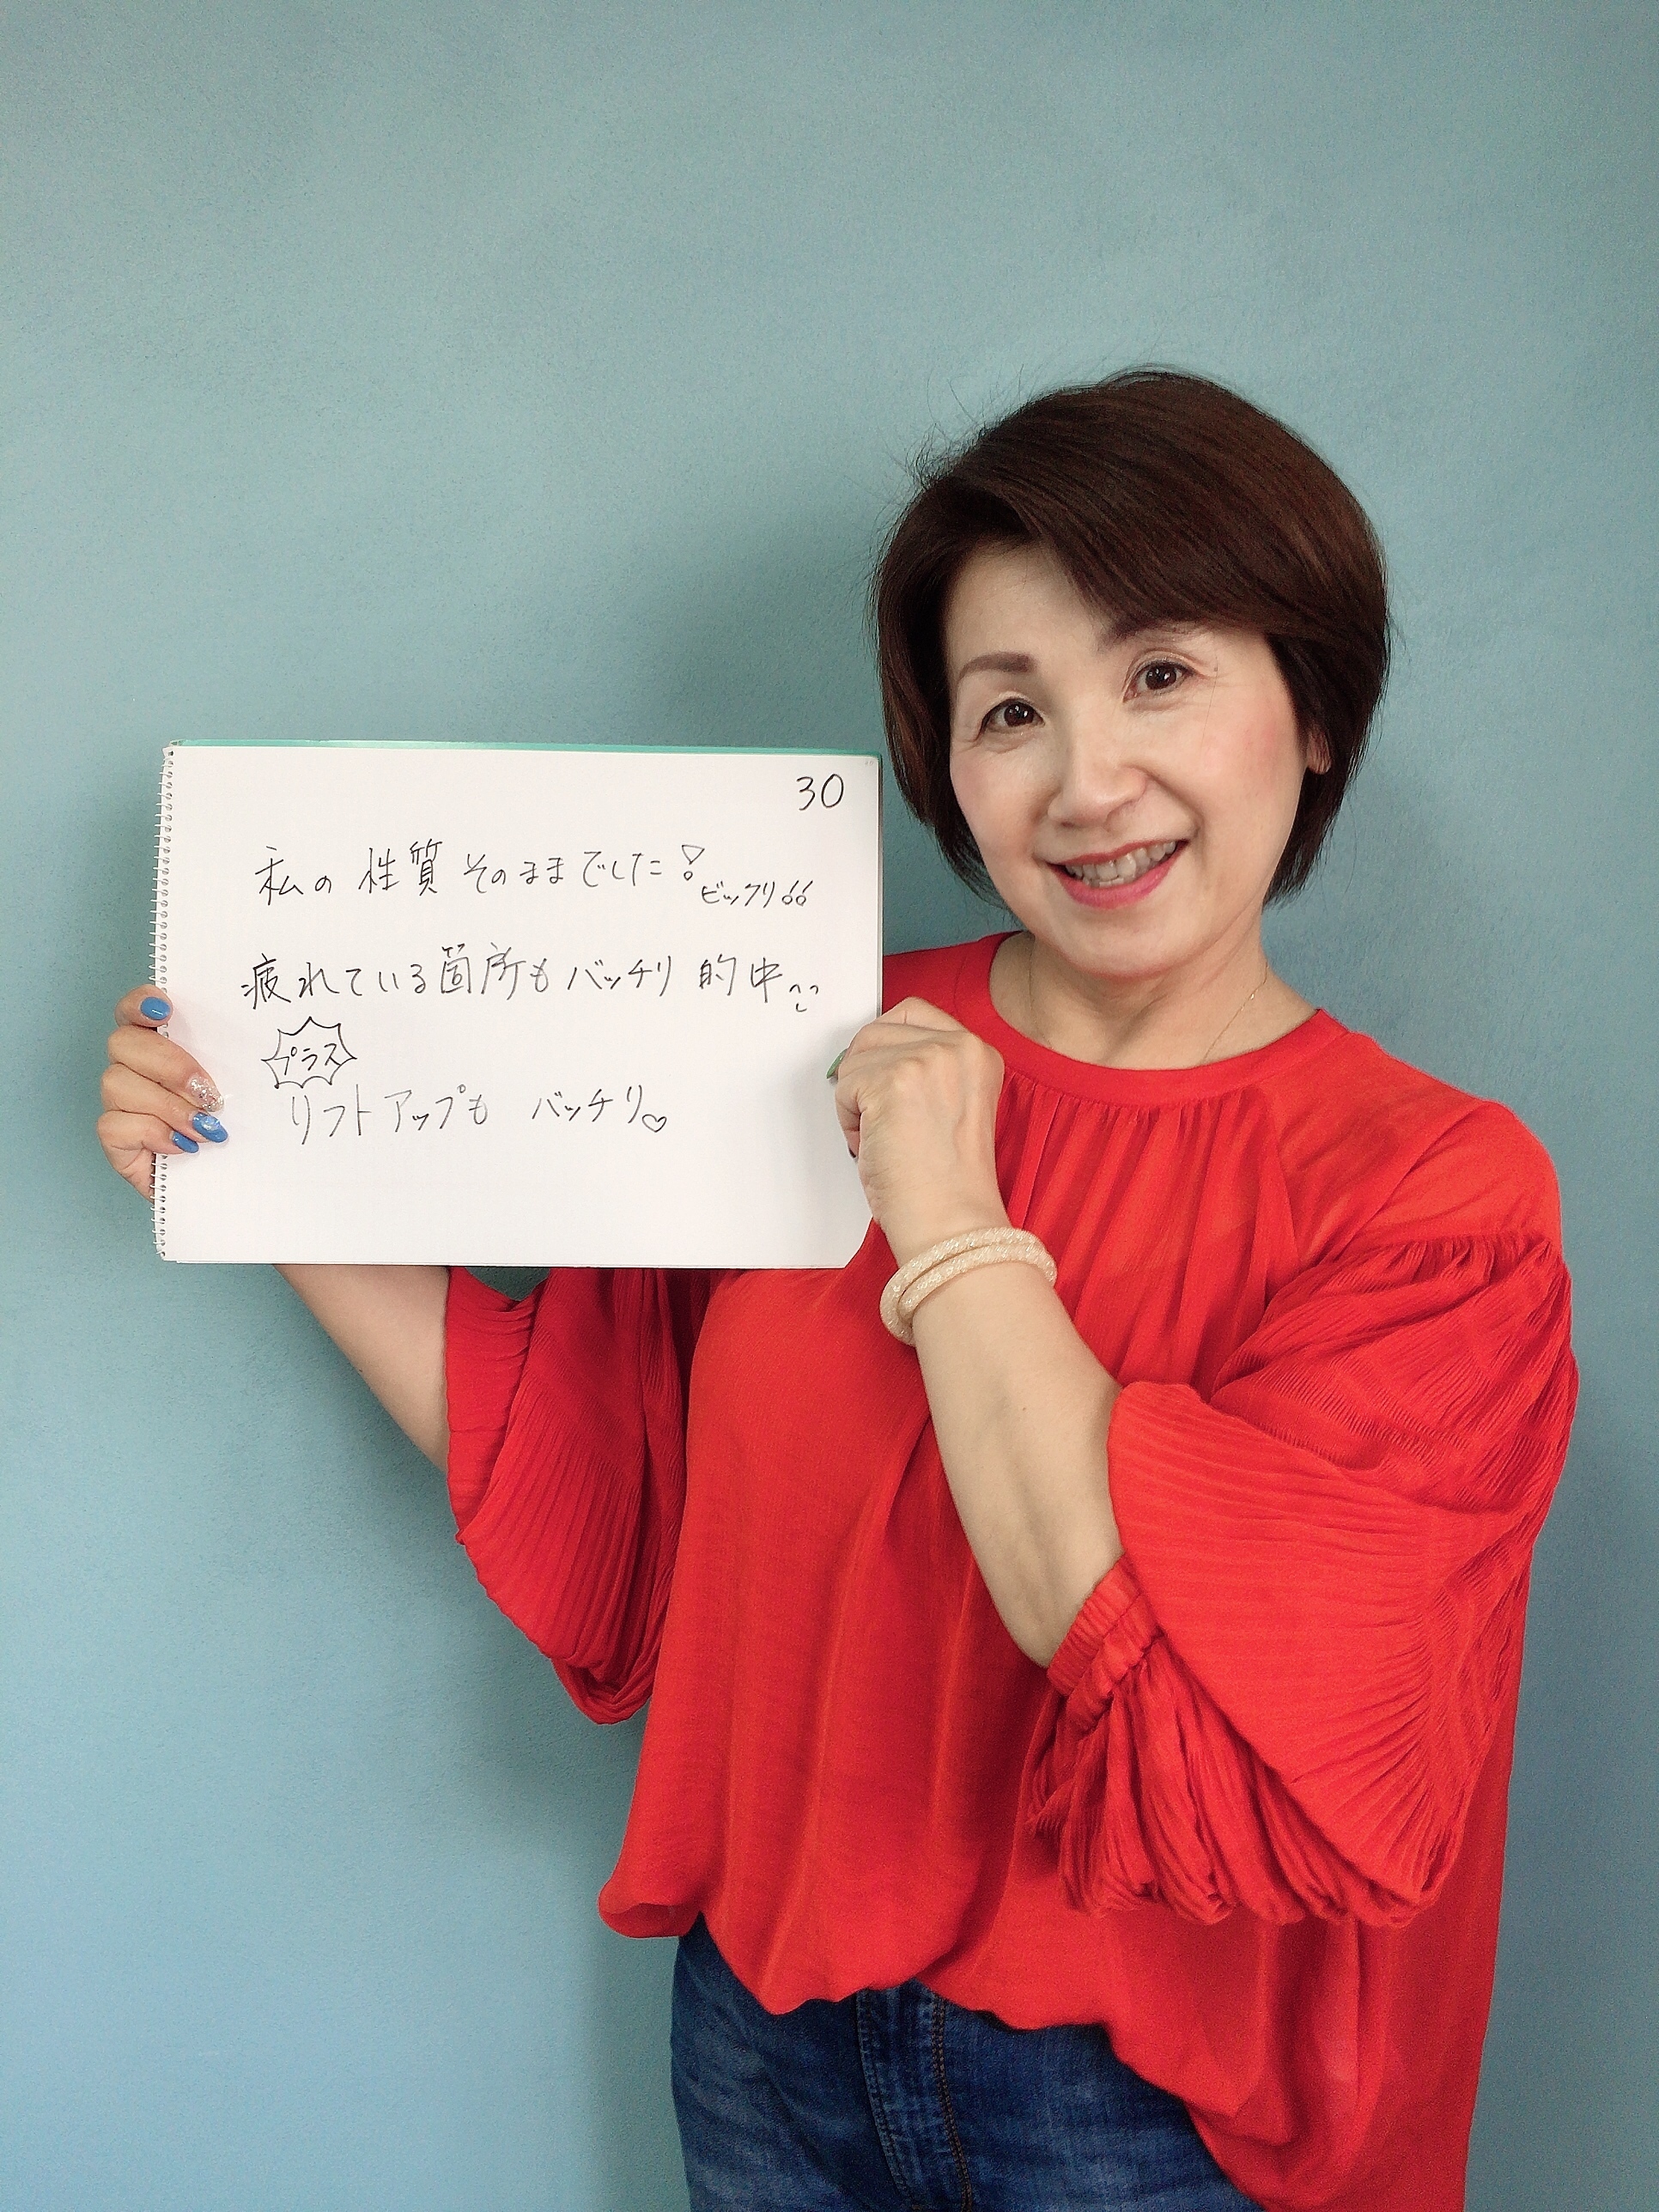 30
私の性質そのままでした! ビックリ!!
疲れている箇所もバッチリ的中
プラス
リフトアップも バッチリ♡